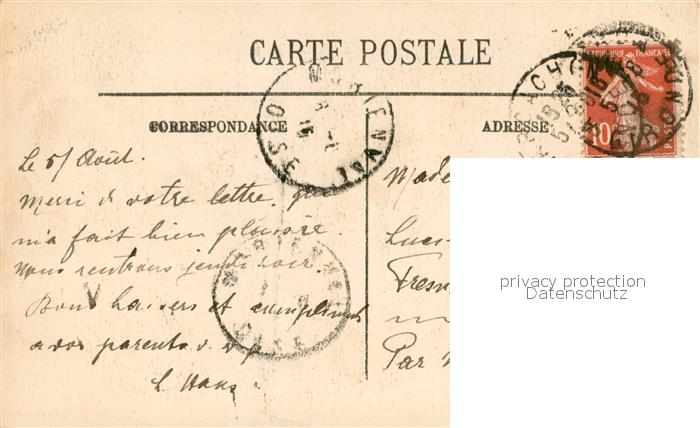 CARTE POSTALE
CORRESPONDANCE
ADRESSE
REPUBLIQUE FRANÇAISE
10
POSTES
ARCACHON
GIRONDE
MORIENVAL
OISE
MORIENVAL
OISE
Le 5/ Août.
Merci de votre lettre, qui
m'a fait bien plaisir.
Nous rentrons jeudi soir.
Bons baisers et compliments
a vos parents
Made
Luci
Fresn
Par
privacy protection
Datenschutz